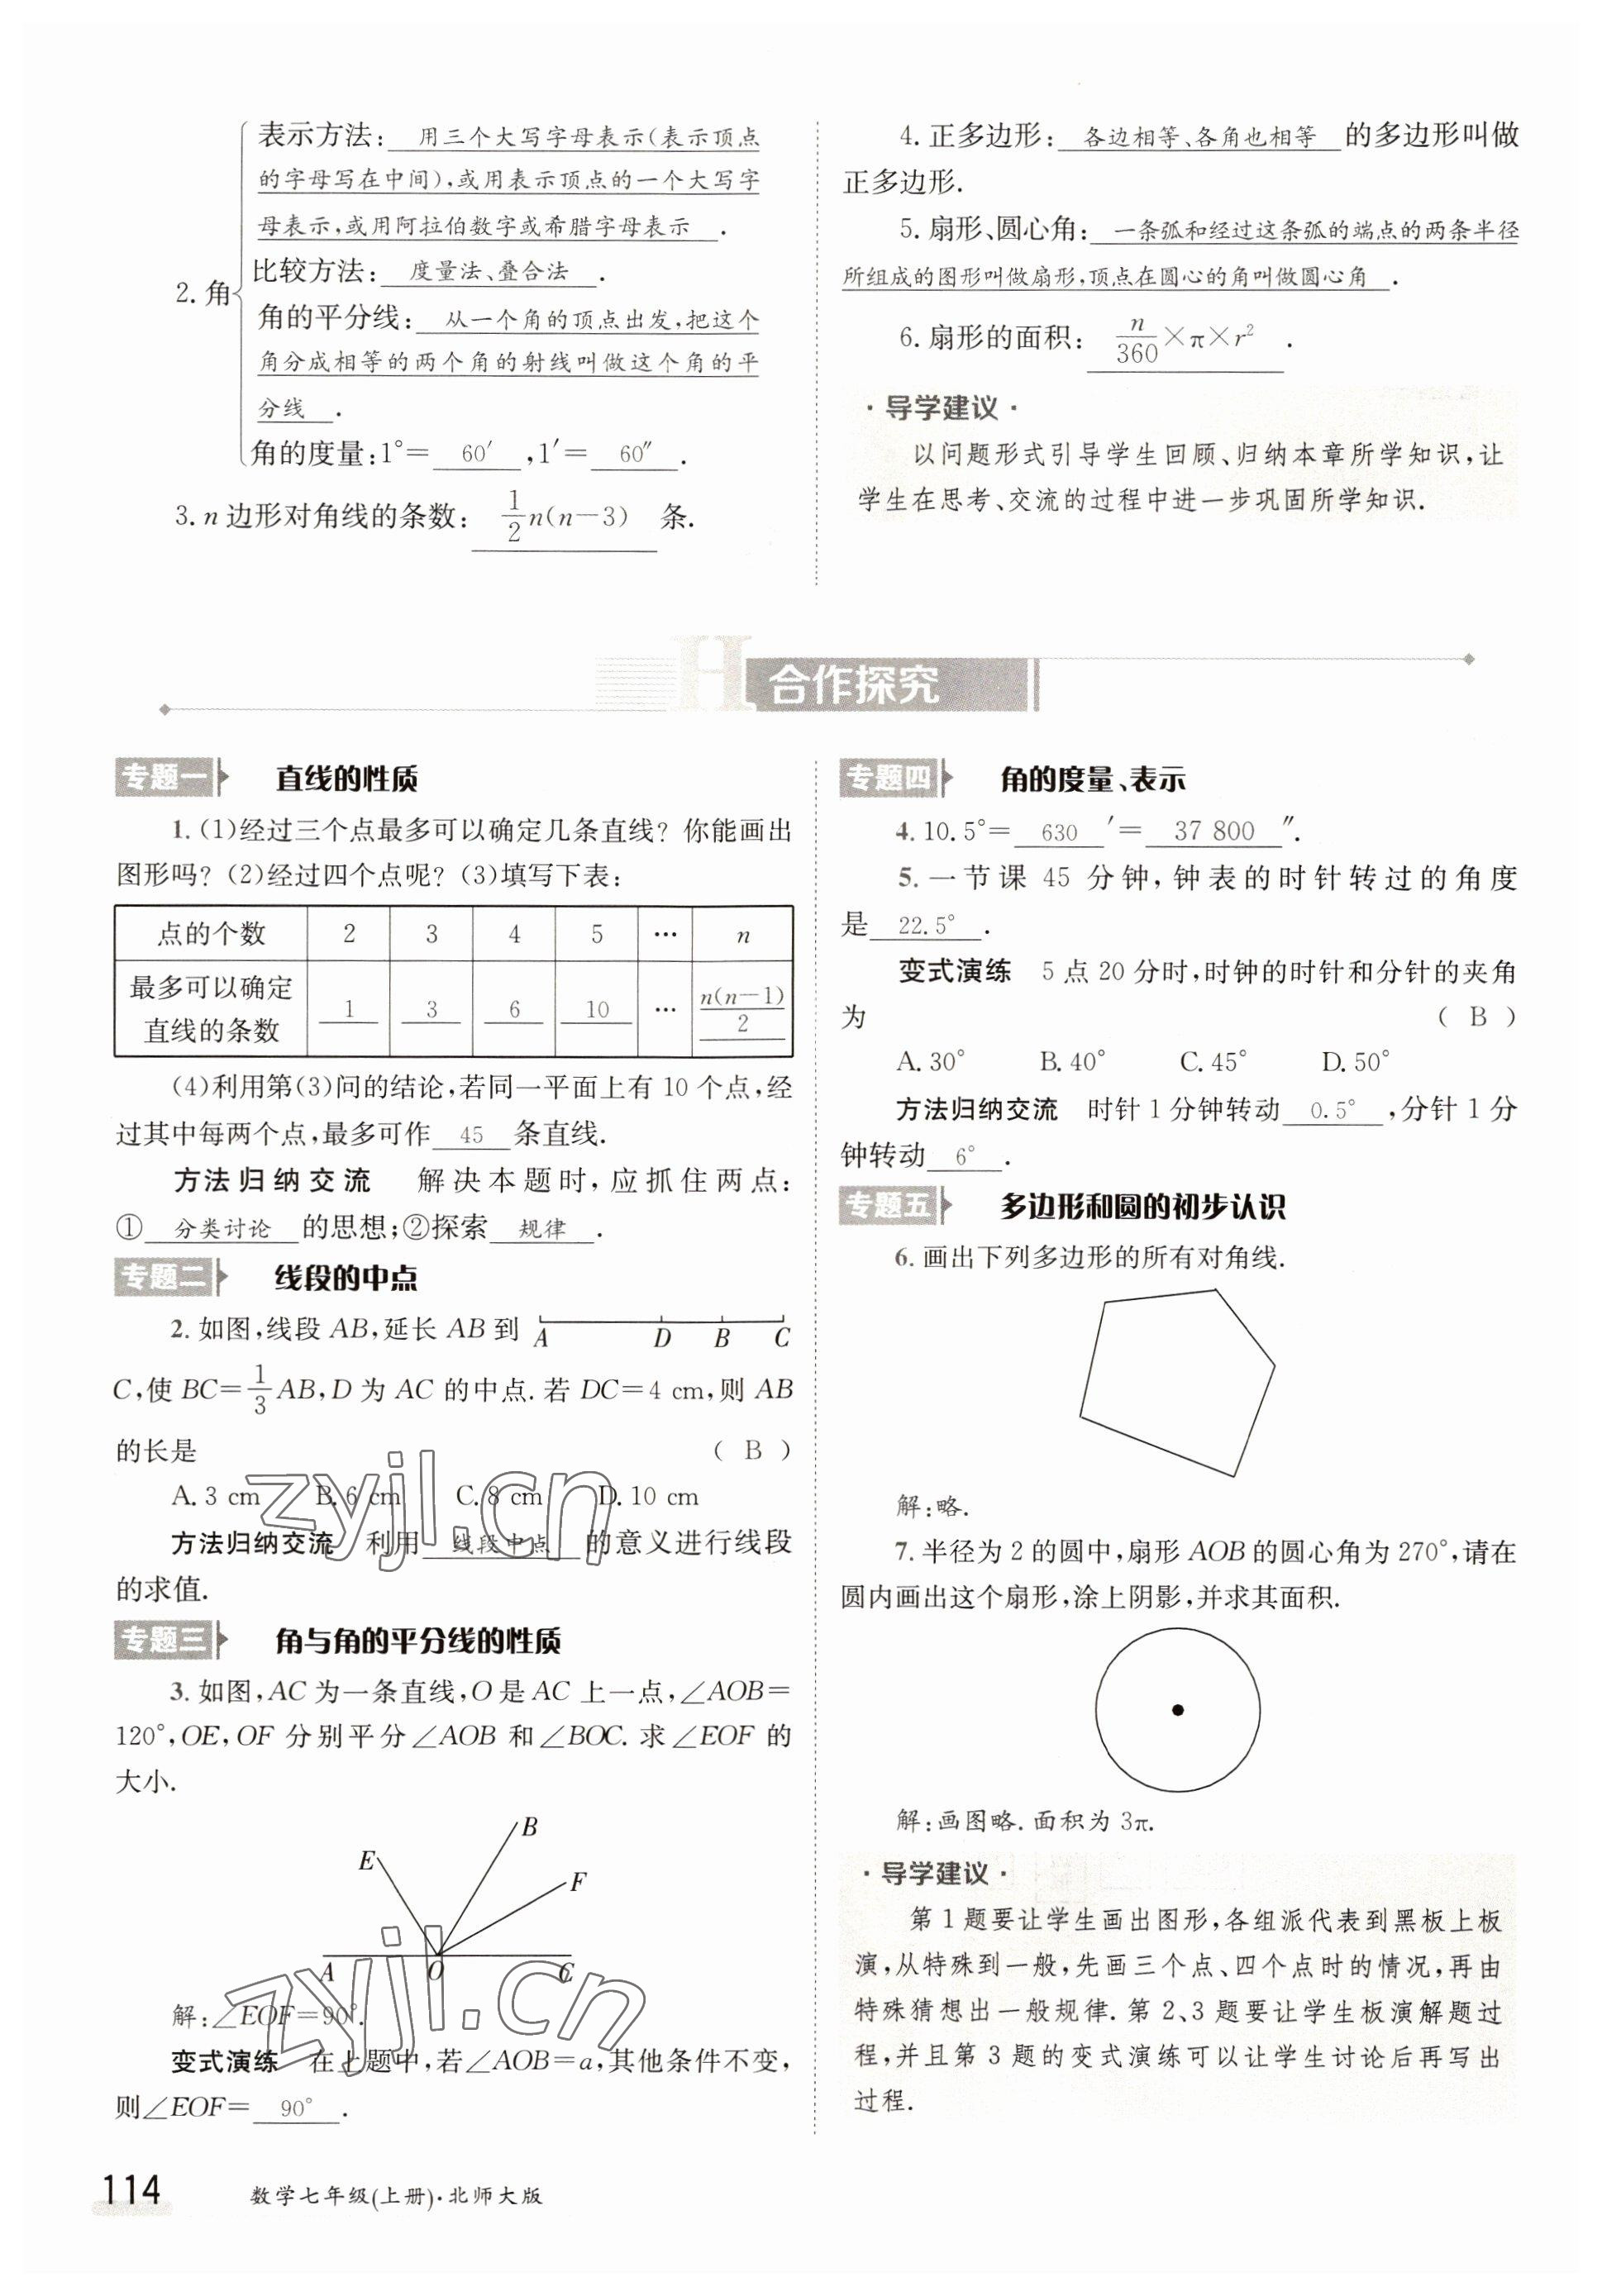 表示方法:用三个大写字母表示(表示顶点
的字母写在中间),或用表示顶点的一个大写字
母表示,或用阿拉伯数字或希腊字母表示.
比较方法:度量法、叠合法.
2.角
角的平分线:从一个角的顶点出发,把这个
角分成相等的两个角的射线叫做这个角的平
分线.
角的度量:1°=60′,1′=60″.
3.n边形对角线的条数:1/2n(n-3)条.
4.正多边形:各边相等、各角也相等的多边形叫做
正多边形.
5.扇形、圆心角:一条弧和经过这条弧的端点的两条半径
所组成的图形叫做扇形,顶点在圆心的角叫做圆心角.
6.扇形的面积:n/360×π×r².
·导学建议·
以问题形式引导学生回顾、归纳本章所学知识,让
学生在思考、交流的过程中进一步巩固所学知识.
H 合作探究
专题一 直线的性质
1.(1)经过三个点最多可以确定几条直线?你能画出
图形吗?(2)经过四个点呢?(3)填写下表:
点的个数 2 3 4 5 … n
最多可以确定
直线的条数 1 3 6 10 … n(n-1)/2
(4)利用第(3)问的结论,若同一平面上有10个点,经
过其中每两个点,最多可作45条直线.
方法归纳交流 解决本题时,应抓住两点:
①分类讨论的思想;②探索规律.
专题二 线段的中点
2.如图,线段AB,延长AB到
A D B C
C,使BC=1/3AB,D为AC的中点.若DC=4 cm,则AB
的长是 (B)
A.3 cm B.6 cm C.8 cm D.10 cm
方法归纳交流 利用线段中点的意义进行线段
的求值.
专题三 角与角的平分线的性质
3.如图,AC为一条直线,O是AC上一点,∠AOB=
120°,OE,OF分别平分∠AOB和∠BOC.求∠EOF的
大小.
B
E
F
A O C
解:∠EOF=90°.
变式演练 在上题中,若∠AOB=a,其他条件不变,
则∠EOF=90°.
专题四 角的度量、表示
4.10.5°=630′=37 800″.
5.一节课45分钟,钟表的时针转过的角度
是22.5°.
变式演练 5点20分时,时钟的时针和分针的夹角
为 (B)
A.30° B.40° C.45° D.50°
方法归纳交流 时针1分钟转动0.5°,分针1分
钟转动6°.
专题五 多边形和圆的初步认识
6.画出下列多边形的所有对角线.
解:略.
7.半径为2的圆中,扇形AOB的圆心角为270°,请在
圆内画出这个扇形,涂上阴影,并求其面积.
解:画图略.面积为3π.
·导学建议·
第1题要让学生画出图形,各组派代表到黑板上板
演,从特殊到一般,先画三个点、四个点时的情况,再由
特殊猜想出一般规律.第2、3题要让学生板演解题过
程,并且第3题的变式演练可以让学生讨论后再写出
过程.
zyjl.cn
zyjl.cn
114 数学七年级(上册)·北师大版